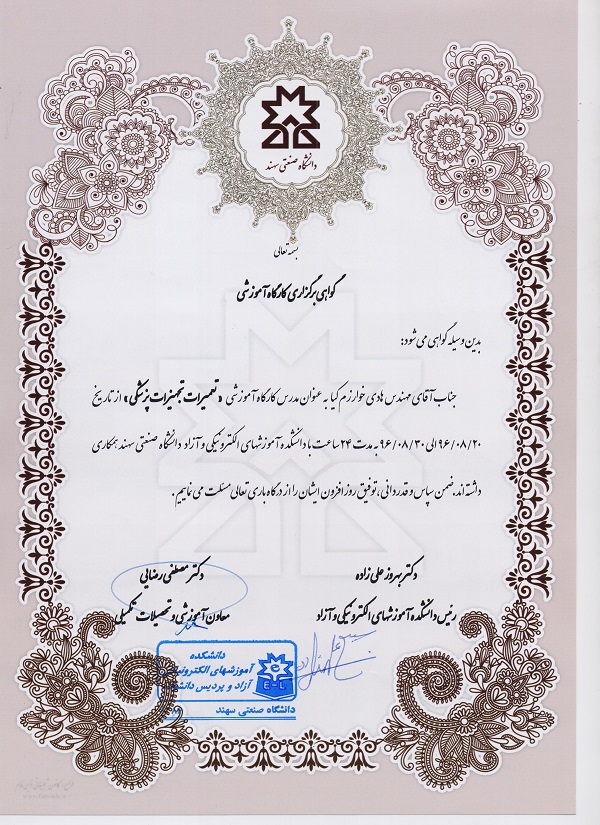 دانشگاه صنعتی سهند
بسمه تعالی
گواهی برگزاری کارگاه آموزشی
بدین وسیله گواهی می شود:
جناب آقای مهندس هادی خوارزم کیا به عنوان مدرس کارگاه آموزشی «تعمیرات تجهیزات پزشکی» از تاریخ
۹۶/۰۸/۲۰ الی ۹۶/۰۸/۳۰ به مدت ۲۴ ساعت با دانشکده آموزشهای الکترونیکی و آزاد دانشگاه صنعتی سهند همکاری
داشته اند. ضمن سپاس و قدردانی، توفیق روز افزون ایشان را از درگاه باری تعالی مسئلت می نماییم.
دکتر بهروز علی زاده
رئیس دانشکده آموزشهای الکترونیکی و آزاد
دکتر مصطفی رضایی
معاون آموزشی و تحصیلات تکمیلی
دانشکده
آموزشهای الکترونیکی
آزاد و پردیس دانشگاه
E-L
دانشگاه صنعتی سهند